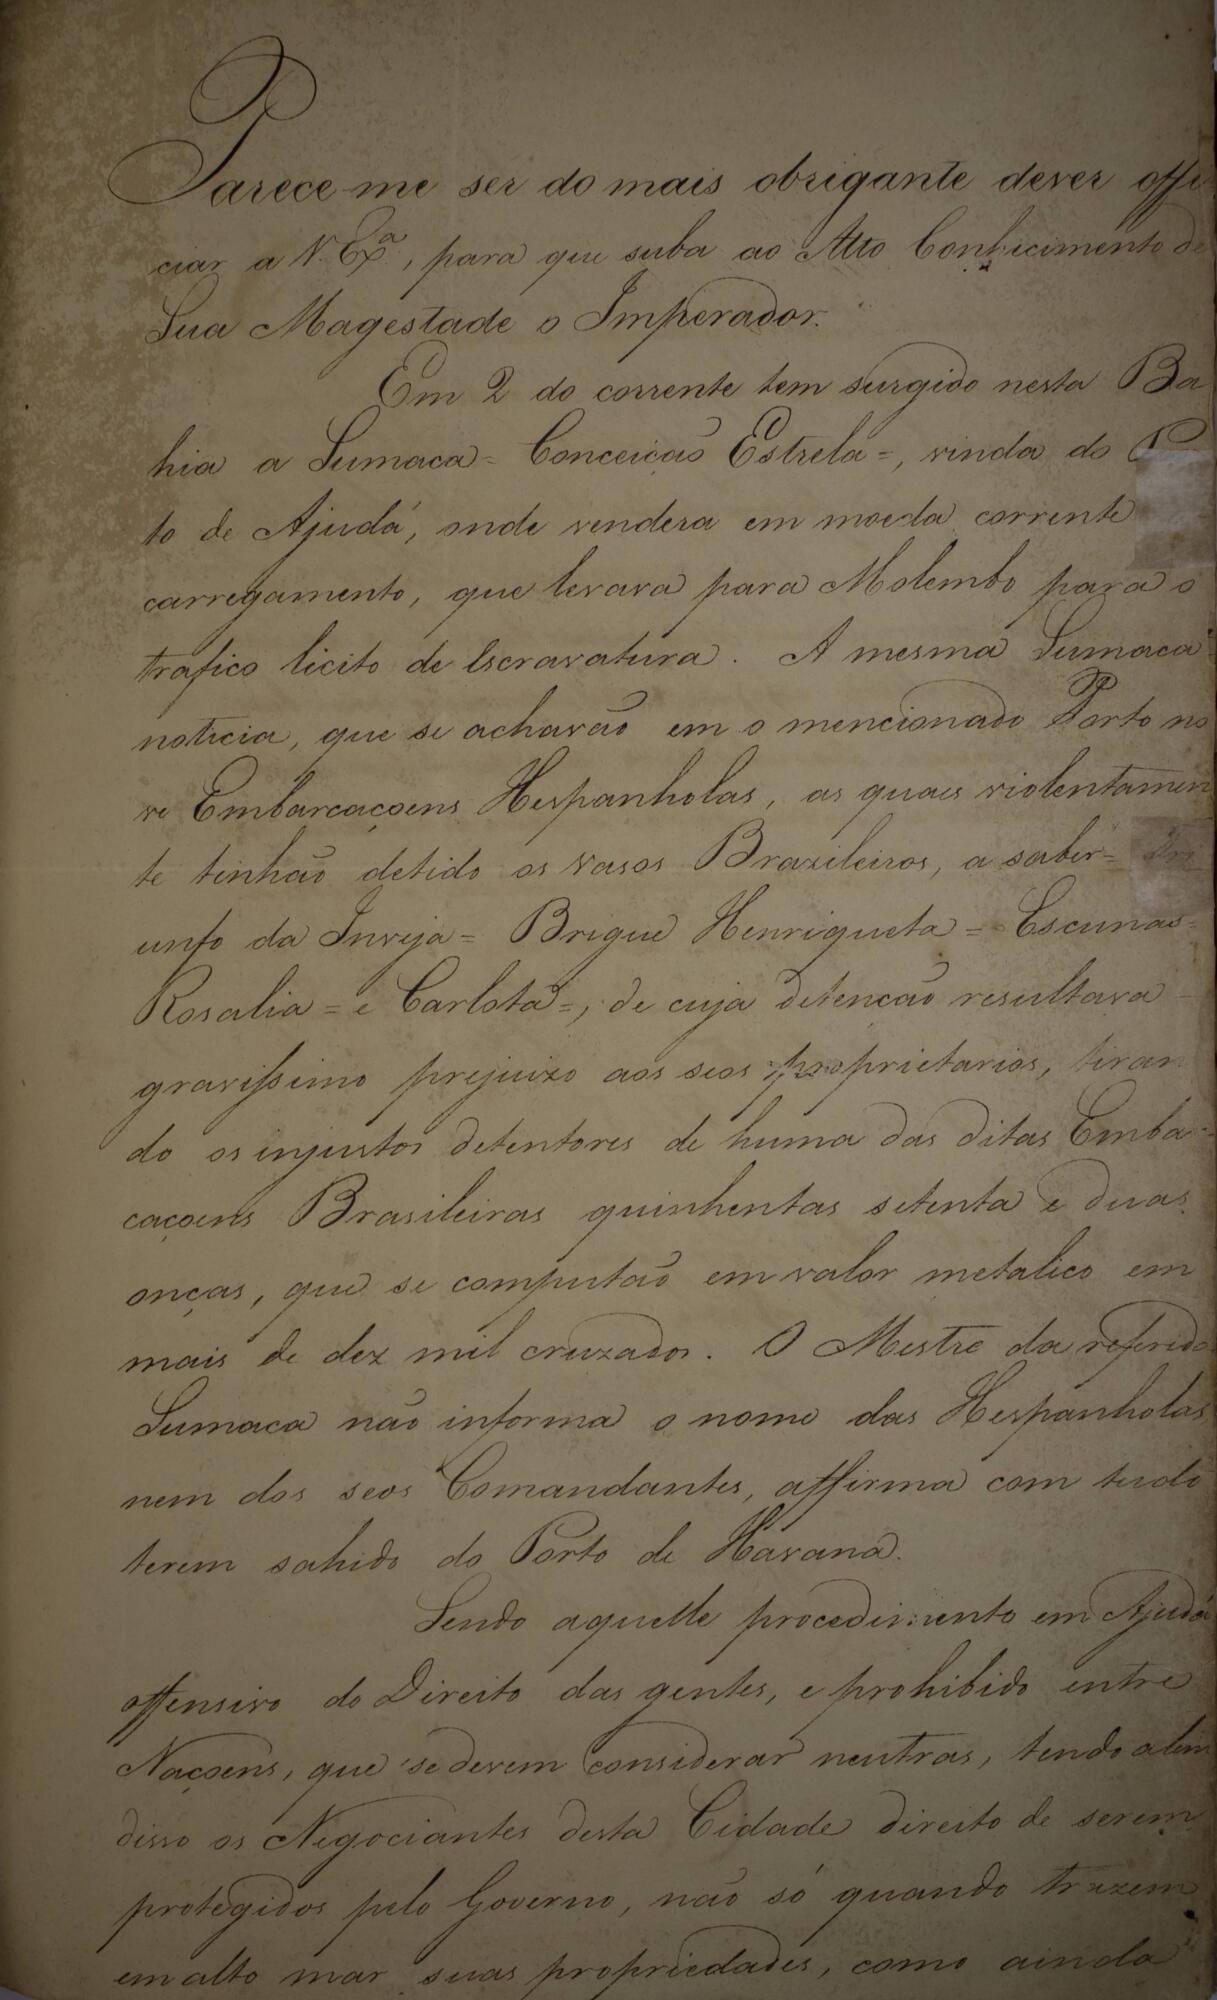 Parece-me ser do mais obrigante dever offi
ciar a V. Exª, para que suba ao Alto Conhecimento de
Sua Magestade o Imperador.
Em 2 do corrente tem surgido nesta Ba
hia a Sumaca = Conceição Estrela =, vinda do
to de Ajudá, onde vendera em moeda corrente
carregamento, que levava para Molembo para o
trafico licito de Escravatura. A mesma Sumaca
noticia, que se achavão em o mencionado Porto no
ve Embarcaçoens Hespanholas, as quaes violentamen
te tinhão detido os vasos Brazileiros, a saber = Tri
unfo da Inveja = Brigue Henriqueta = Escunas =
Rosalia = e Carlota =, de cuja detenção resultava
gravissimo prejuizo aos seos proprietarios, tiran
do os injustos detentores de huma das ditas Emba
caçoens Brasileiras quinhentas setenta e duas
onças, que se computão em valor metalico em
mais de dez mil cruzados. O Mestre da referida
Sumaca não informa o nome das Hespanholas
nem dos seos Comandantes, affirma com tudo
terem sahido do Porto de Havana.
Sendo aquelle procedimento em Ajudá
offensivo do Direito das gentes, e prohibido entre
Naçoens, que se devem considerar neutras, tendo alem
disso os Negociantes desta Cidade direito de serem
protegidos pelo Governo, não só quando trazem
em alto mar suas propriedades, como ainda